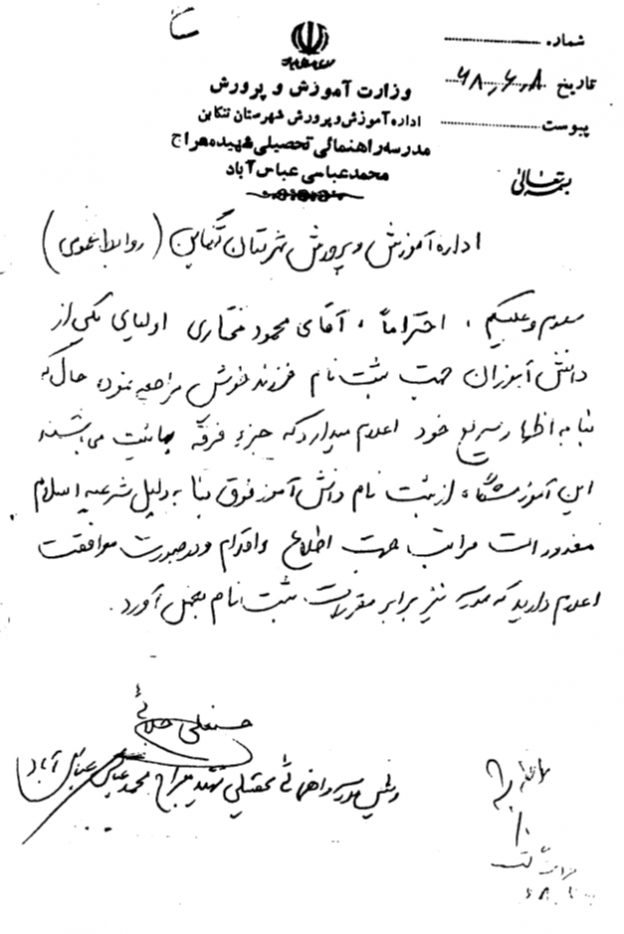 شماره
تاریخ ۶۸٫۶٫۸
پیوست
وزارت آموزش و پرورش
اداره آموزش و پرورش شهرستان تنکابن
مدرسه راهنمائی تحصیلی شهید معراج
محمد عباسی عباس آباد
بسمه تعالی
اداره آموزش و پرورش شهرستان تنکابن (روابط عمومی)
سلام و علیکم ، احتراماً ، آقای محمود مختاری اولیای یکی از
دانش آموزان جهت ثبت نام فرزند خویش مراجعه نموده حال که
بنا به اظهار صریح خود اعلام میدارد که جزء فرقه بهائیت می باشند
این آموزشگاه از ثبت نام دانش آموز فوق بنا به دلیل شرعیه اسلام
معذور است مراتب جهت اطلاع و اقدام و در صورت موافقت
اعلام دارید که مدرسه نیز برابر مقررات ثبت نام بعمل آورد.
حسنعلی
رئیس مدرسه راهنمائی تحصیلی شهید معراج محمد عباسی عباس آباد